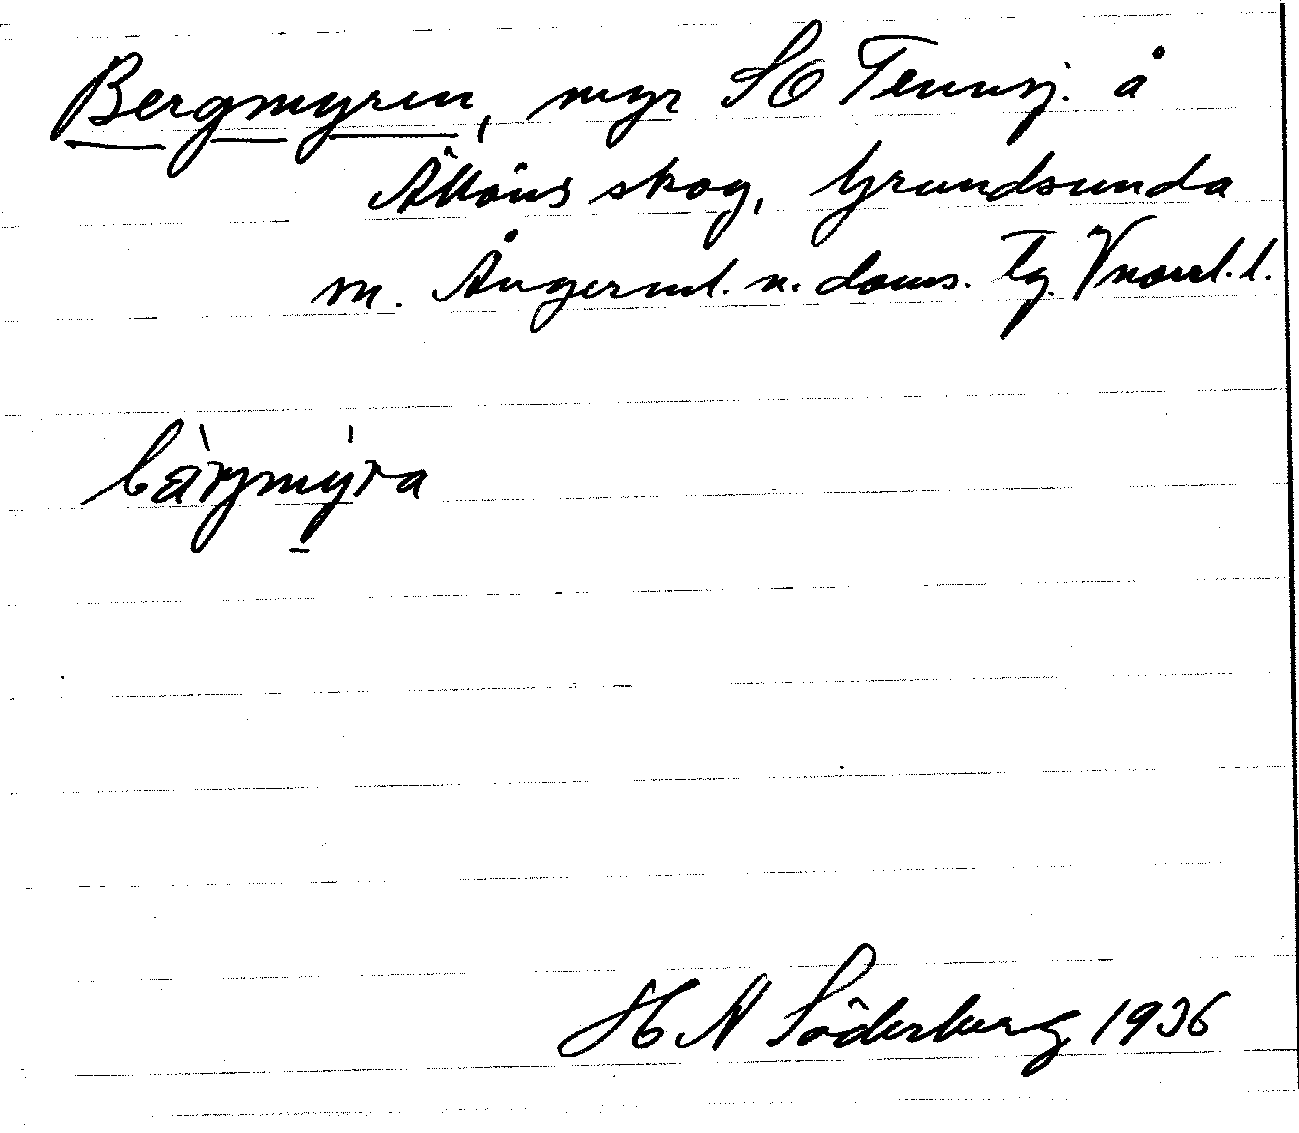 Bergmyren, myr SO Tennsj. å
skog, Grundsunda
m. Ångerml. n. doms. tg Vnorrl. l.
bàrgmýra
H N Söderberg 1936